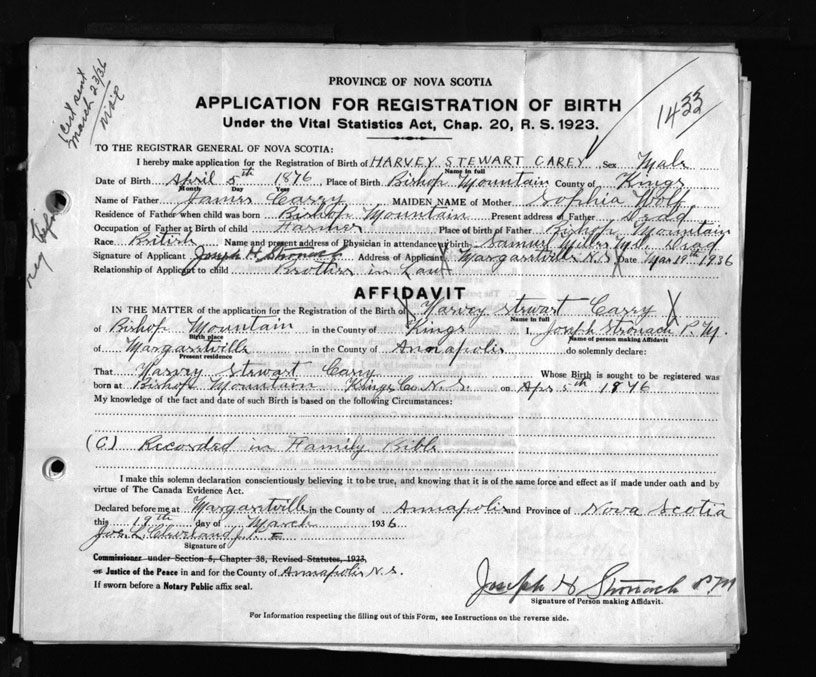 Cert sent
March 23/36
1433
PROVINCE OF NOVA SCOTIA
APPLICATION FOR REGISTRATION OF BIRTH
Under the Vital Statistics Act, Chap. 20, R. S. 1923.
TO THE REGISTRAR GENERAL OF NOVA SCOTIA:
I hereby make application for the Registration of Birth of HARVEY STEWART CAREY Sex Male
Name in full
Date of Birth April 5th 1876, Place of Birth Bishop Mountain County of Kings
Month Day Year
Name of Father James Carey MAIDEN NAME of Mother Sophia Wolf
Residence of Father when child was born Bishop Mountain Present address of Father Dead
Occupation of Father at Birth of child Farmer Place of birth of Father Bishop Mountain
Race British Name and present address of Physician in attendance at birth Samuel Miller M.D. Dead
Signature of Applicant Joseph H Stronach Address of Applicant Margaretville N.S. Date Mar 19th 1936
Relationship of Applicant to child Brother in Law
AFFIDAVIT
IN THE MATTER of the application for the Registration of the Birth of Harvey Stewart Carey
Name in full
of Bishop Mountain in the County of Kings I, Joseph Stronach P.M.
Birth place Name of person making Affidavit
of Margaretville in the County of Annapolis do solemnly declare:
Present residence
That Harvey Stewart Carey Whose Birth is sought to be registered was
born at Bishop Mountain Kings Co N.S. on Apr 5th 1876
My knowledge of the fact and date of such Birth is based on the following Circumstances:
(C) Recorded in Family Bible
I make this solemn declaration conscientiously believing it to be true, and knowing that it is of the same force and effect as if made under oath and by
virtue of The Canada Evidence Act.
Declared before me at Margaretville in the County of Annapolis and Province of Nova Scotia
this 19th day of March 1936
Signature of
Commissioner under Section 5, Chapter 38, Revised Statutes, 1923,
or Justice of the Peace in and for the County of Annapolis N.S.
If sworn before a Notary Public affix seal.
Joseph H Stronach P.M
Signature of Person making Affidavit.
For Information respecting the filling out of this Form, see Instructions on the reverse side.